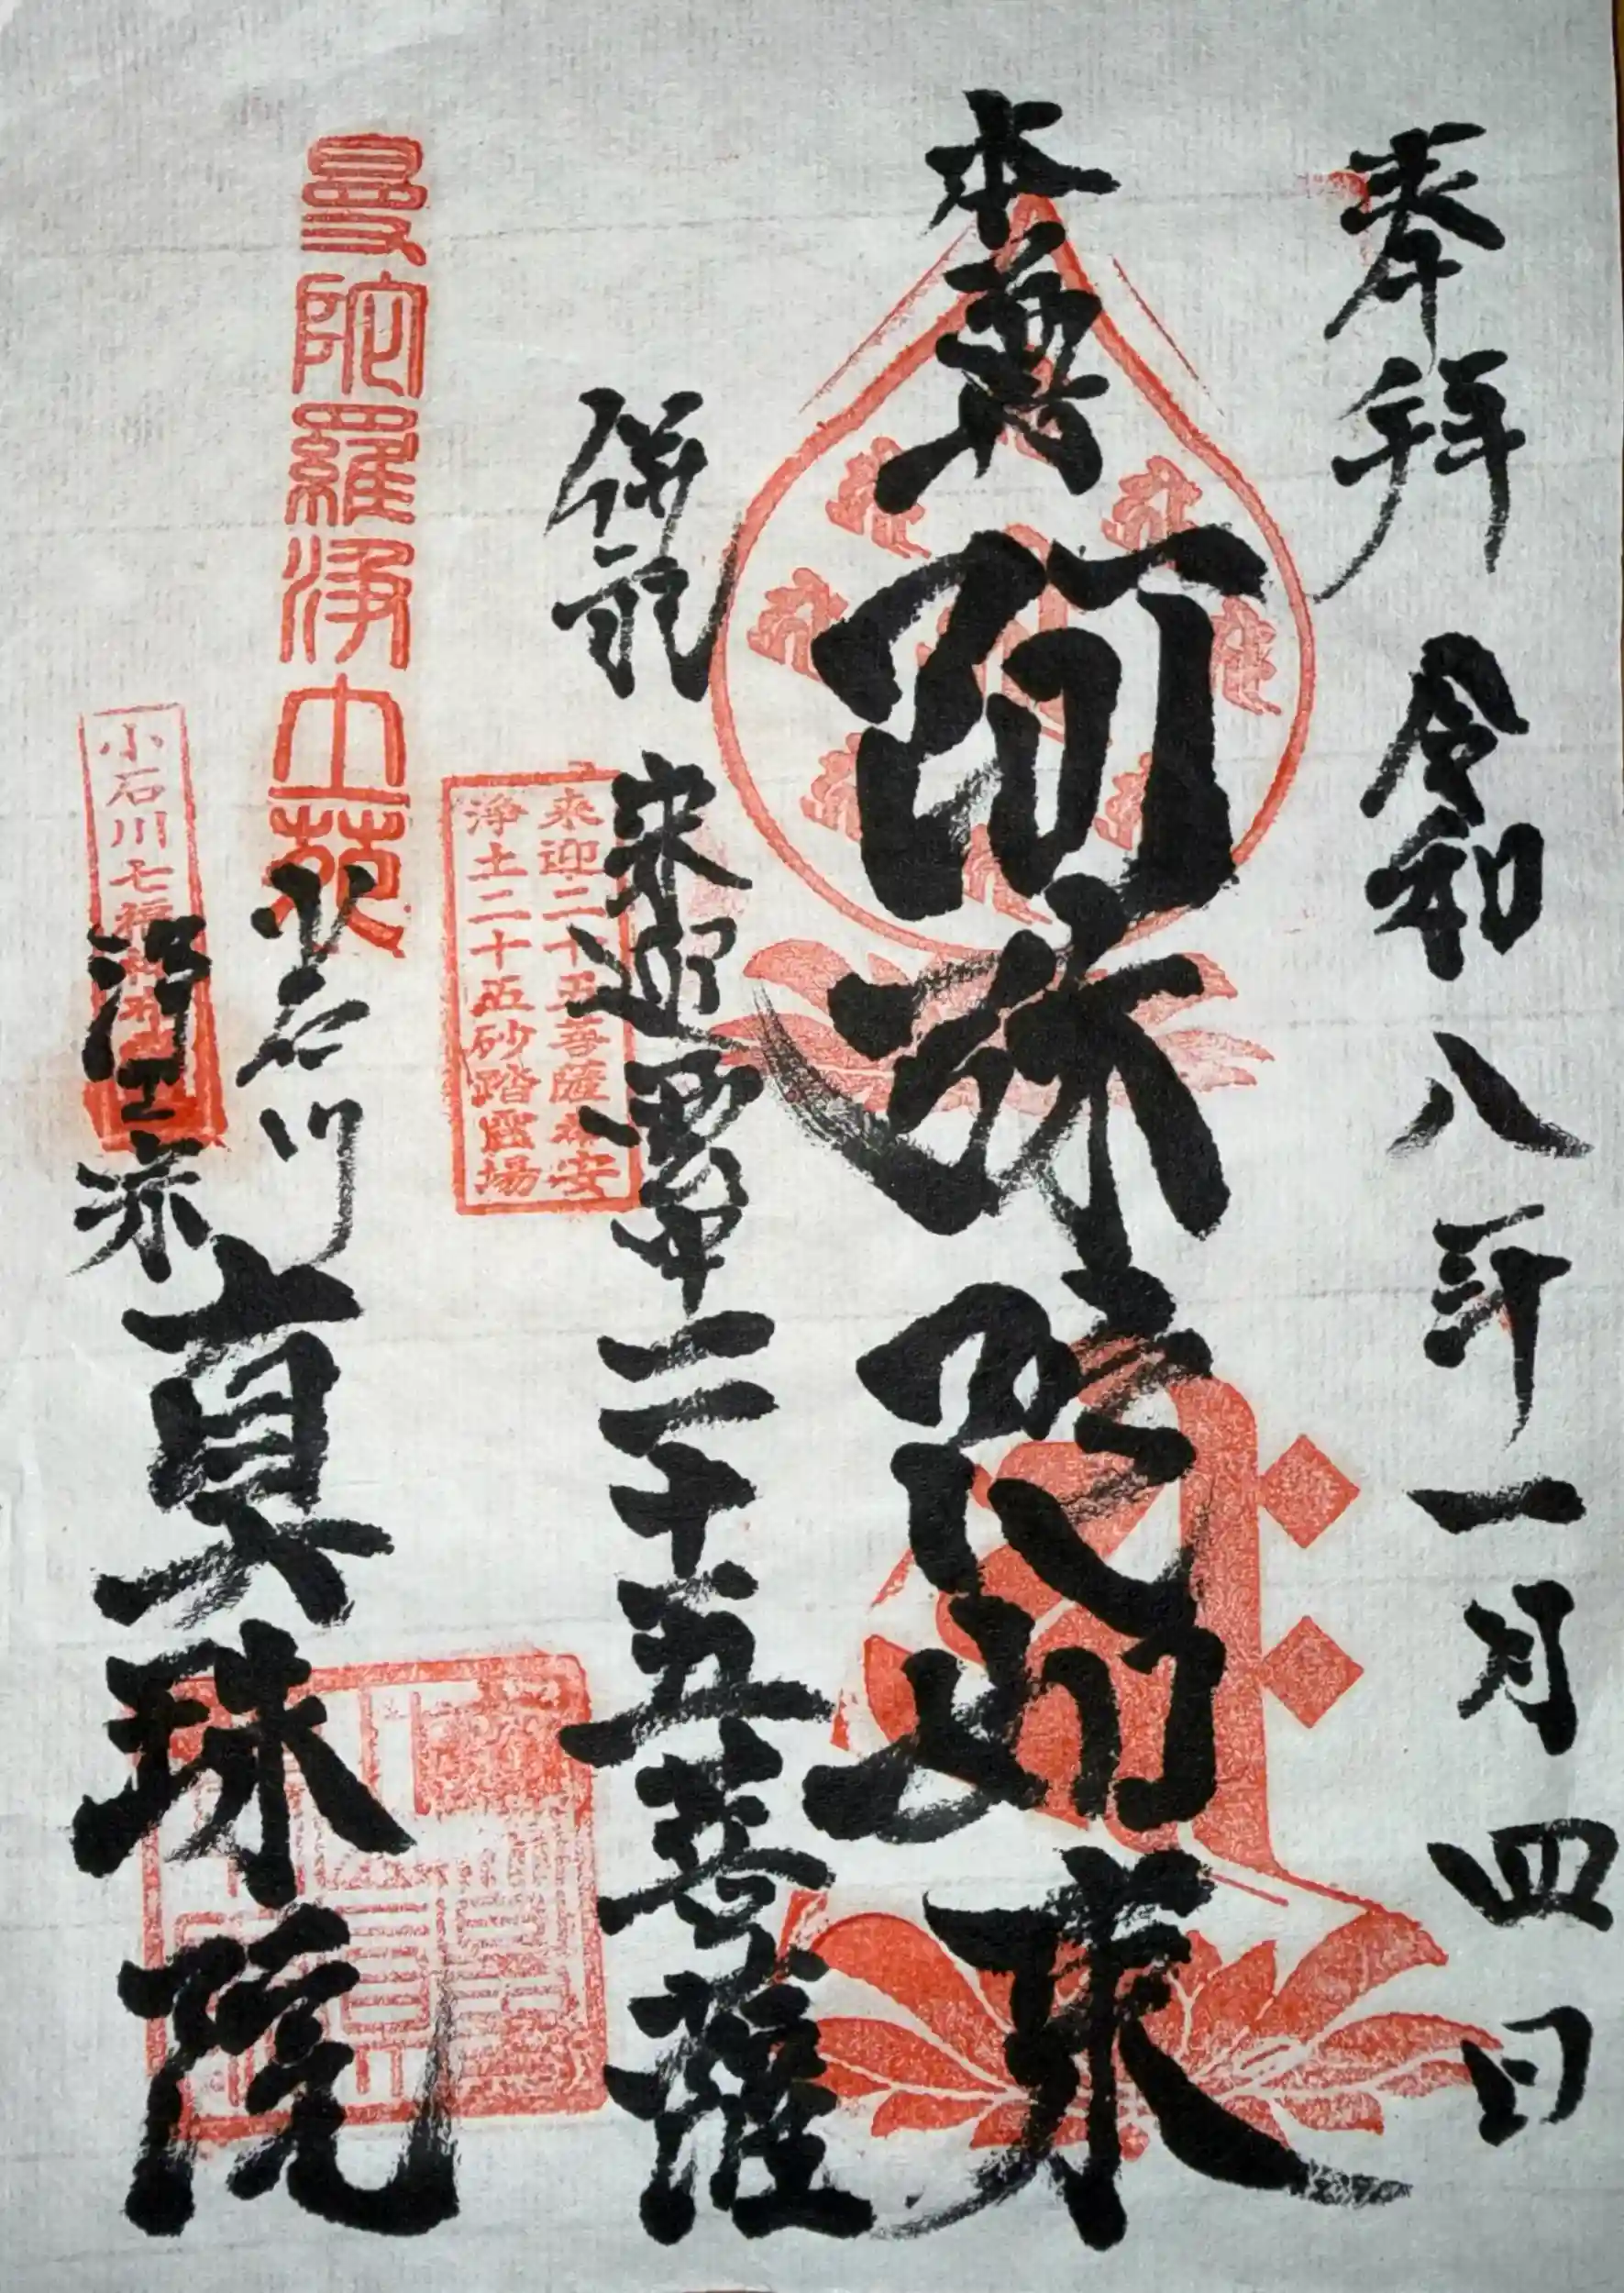 奉拝 令和八年一月四日
本尊 阿弥陀如来
併祀 来迎 二十五菩薩
来迎二十五菩薩奉安
浄土二十五砂踏霊場
曼陀羅浄土苑
小石川
浄土宗
真珠院
小石川七福神